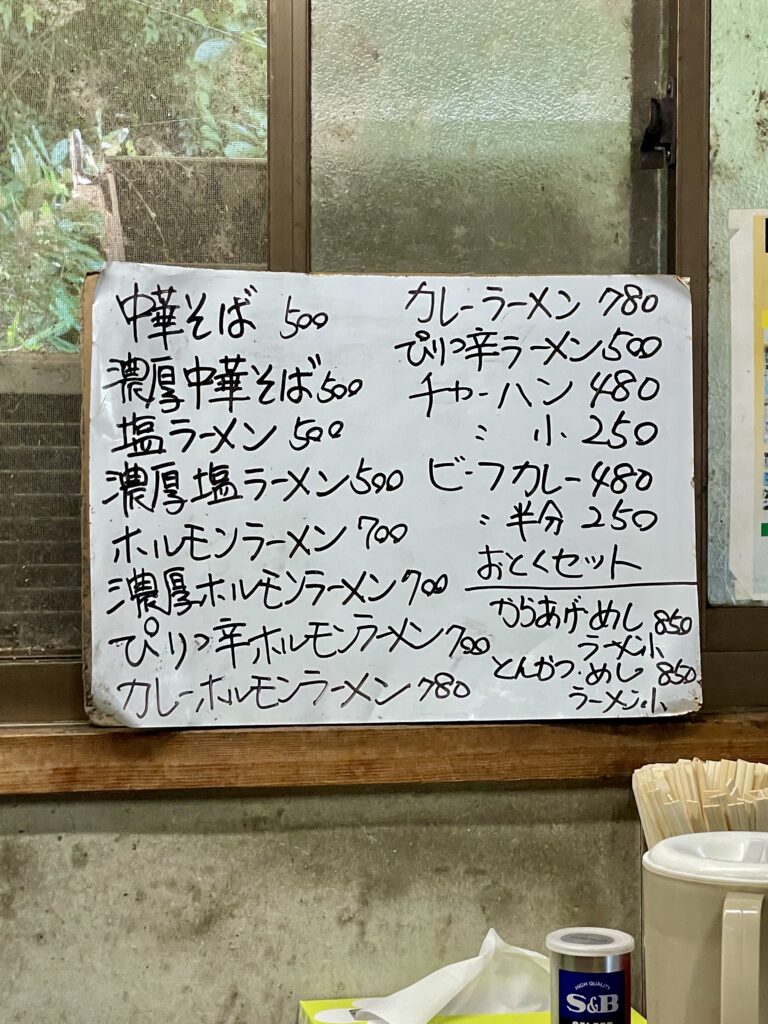 中華そば 500
濃厚中華そば500
塩ラーメン 500
濃厚塩ラーメン500
ホルモンラーメン 700
濃厚ホルモンラーメン700
ぴりっ辛ホルモンラーメン700
カレーホルモンラーメン 780
カレーラーメン 780
ぴりっ辛ラーメン500
チャーハン 480
〃 小 250
ビーフカレー480
〃半分 250
おとくセット
からあげ・めし 850
ラーメン小
とんかつ・めし 850
ラーメン小
HIGH QUALITY
S&B